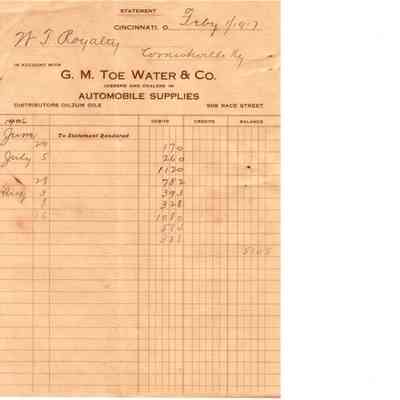 STATEMENT
CINCINNATI, O. Feby 1/1917
W T Royalty
Cornishville Ky
IN ACCOUNT WITH
G. M. TOE WATER & CO.
JOBBERS AND DEALERS IN
AUTOMOBILE SUPPLIES
DISTRIBUTORS OILZUM OILS 908 RACE STREET
DEBITS CREDITS BALANCE
June To Statement Rendered
29 170
July 5 260
1120
28 782
Aug 3 393
8 328
16 1080